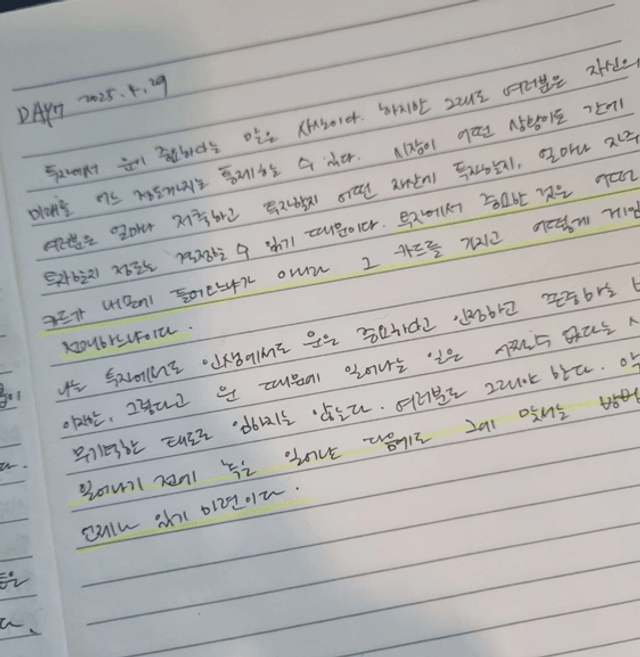 DAY7 2025.4.29
투자에서 운이 중요하다는 말은 사실이다. 하지만 그래도 여러분은 자신의
미래를 어느 정도까지는 통제할 수 있다. 시장이 어떤 상황이든 간에
여러분은 얼마나 저축하고 투자할지 어떤 자산에 투자할지, 얼마나 자주
투자할지 정도는 결정할 수 있기 때문이다. 투자에서 중요한 것은 어떤
카드가 내 손에 들어오느냐가 아니라 그 카드를 가지고 어떻게 게임
진행하느냐이다.
나는 투자에서도 인생에서도 운은 중요하다고 인정하고 존중하는
이지만, 그렇다고 운 때문에 일어나는 일은 어쩔 수 없다는
무기력한 태도로 임하지는 않는다. 여러분도 그래야 한다.
일어나기 전에 혹은 일어난 다음에도 그에 맞서는 방법
언제나 있기 마련이다.